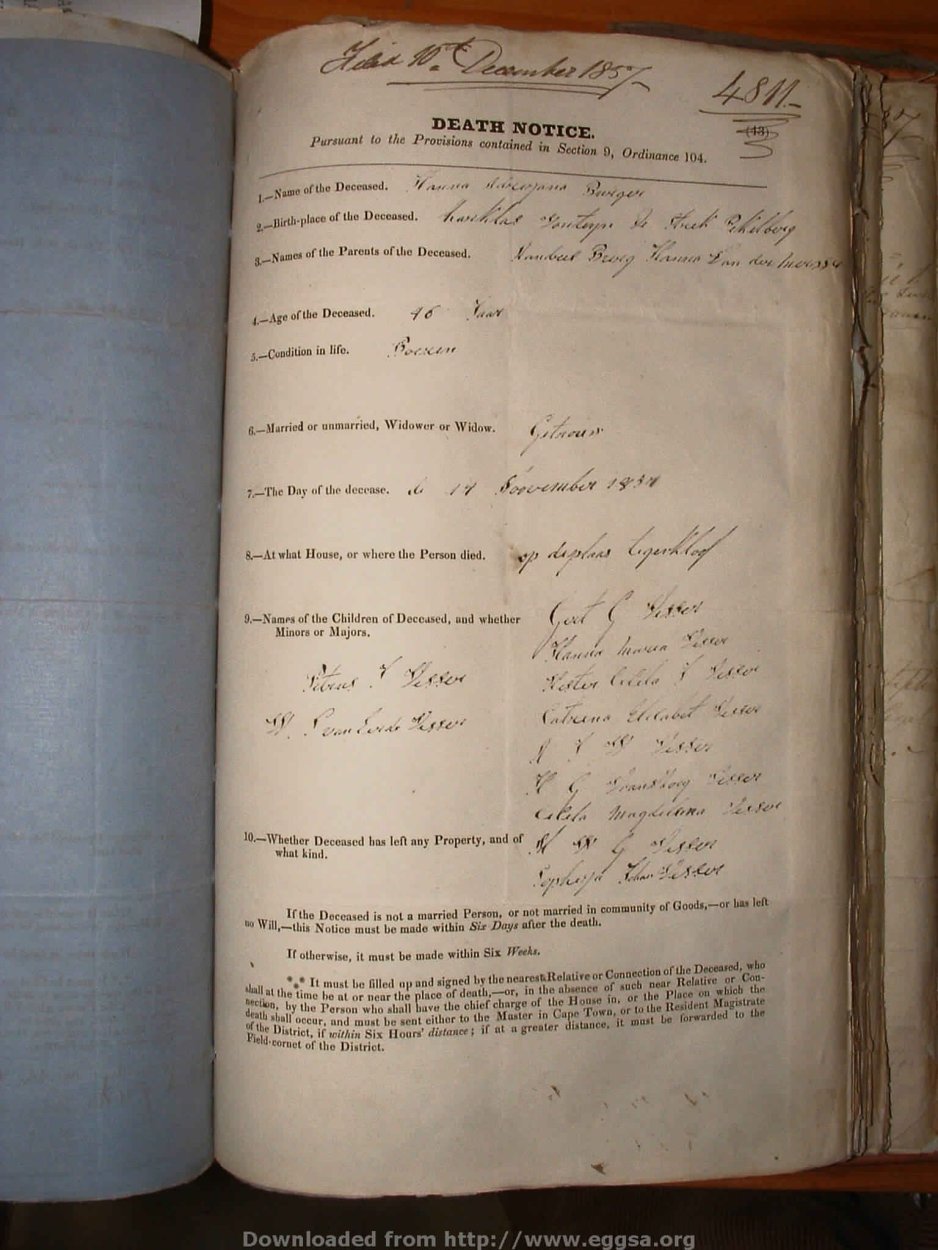 Filed 10th December 1857
4811.
(13)
DEATH NOTICE.
Pursuant to the Provisions contained in Section 9, Ordinance 104.
1.—Name of the Deceased. Hanna Burger
2.—Birth-place of the Deceased.
3.—Names of the Parents of the Deceased. Hanna Van der
4.—Age of the Deceased. 46 Jaar
5.—Condition in life.
6.—Married or unmarried, Widower or Widow. Getrouw
7.—The Day of the decease. de November
8.—At what House, or where the Person died. op deplaas tigerkloof
9.—Names of the Children of Deceased, and whether
Minors or Majors.
Gert G Visser
Hanna Maria Visser
Petrus Visser
Hester Visser
W. Visser
Catrina Elisabet Visser
W Visser
H G Visser
Magdalena Visser
10.—Whether Deceased has left any Property, and of
what kind.
W G Visser
Visser
If the Deceased is not a married Person, or not married in community of Goods,—or has left
no Will,—this Notice must be made within Six Days after the death.
If otherwise, it must be made within Six Weeks.
*** It must be filled up and signed by the nearest Relative or Connection of the Deceased, who
shall at the time be at or near the place of death,—or, in the absence of such near Relative or Con-
nection, by the Person who shall have the chief charge of the House in, or the Place on which the
death shall occur, and must be sent either to the Master in Cape Town, or to the Resident Magistrate
of the District, if within Six Hours' distance; if at a greater distance, it must be forwarded to the
Field-cornet of the District.
Downloaded from http://www.eggsa.org